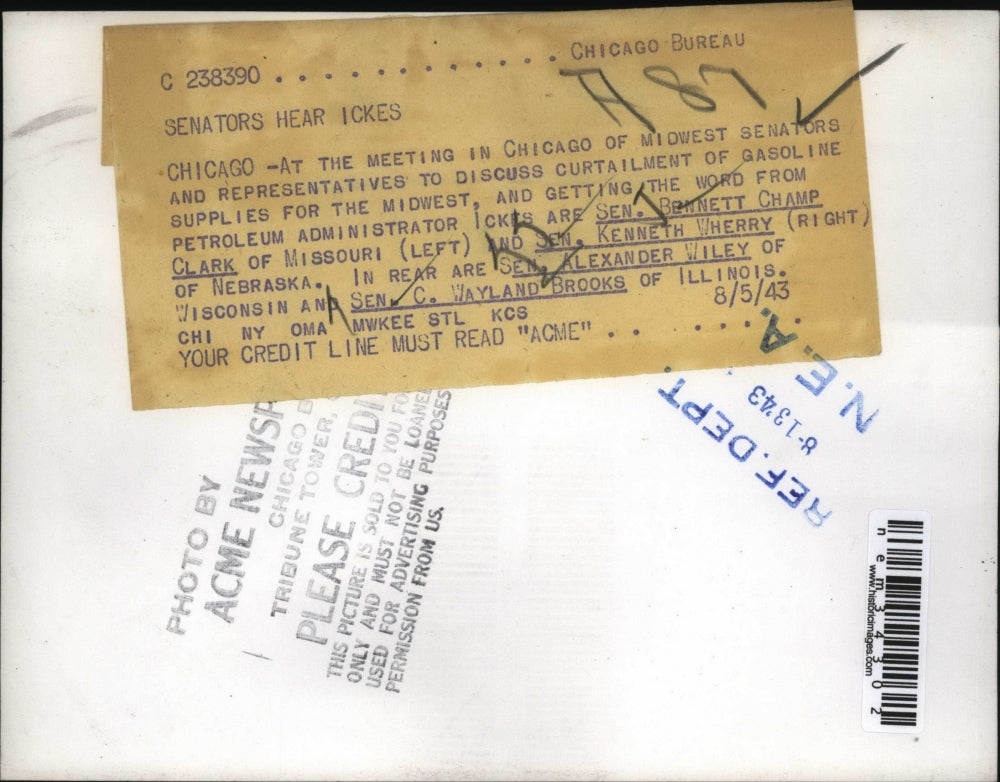 C 238390 . . . . . . . . . . . . . CHICAGO BUREAU
A 87
SENATORS HEAR ICKES
CHICAGO -AT THE MEETING IN CHICAGO OF MIDWEST SENATORS
AND REPRESENTATIVES TO DISCUSS CURTAILMENT OF GASOLINE
SUPPLIES FOR THE MIDWEST, AND GETTING THE WORD FROM
PETROLEUM ADMINISTRATOR ICKES ARE SEN. BENNETT CHAMP
CLARK OF MISSOURI (LEFT) AND SEN. KENNETH WHERRY (RIGHT)
OF NEBRASKA. IN REAR ARE SEN. ALEXANDER WILEY OF
WISCONSIN AND SEN. C. WAYLAND BROOKS OF ILLINOIS.
CHI NY OMA MWKEE STL KCS 8/5/43
YOUR CREDIT LINE MUST READ "ACME" . . . . . . . .
PHOTO BY
ACME NEWSP
TRIBUNE TOWER,
CHICAGO B
PLEASE CREDI
THIS PICTURE IS SOLD TO YOU FO
ONLY AND MUST NOT BE LOANED
USED FOR ADVERTISING PURPOSES
PERMISSION FROM US.
N.E.A.
8-13-43
REF. DEPT.
nem34302
www.historicimages.com